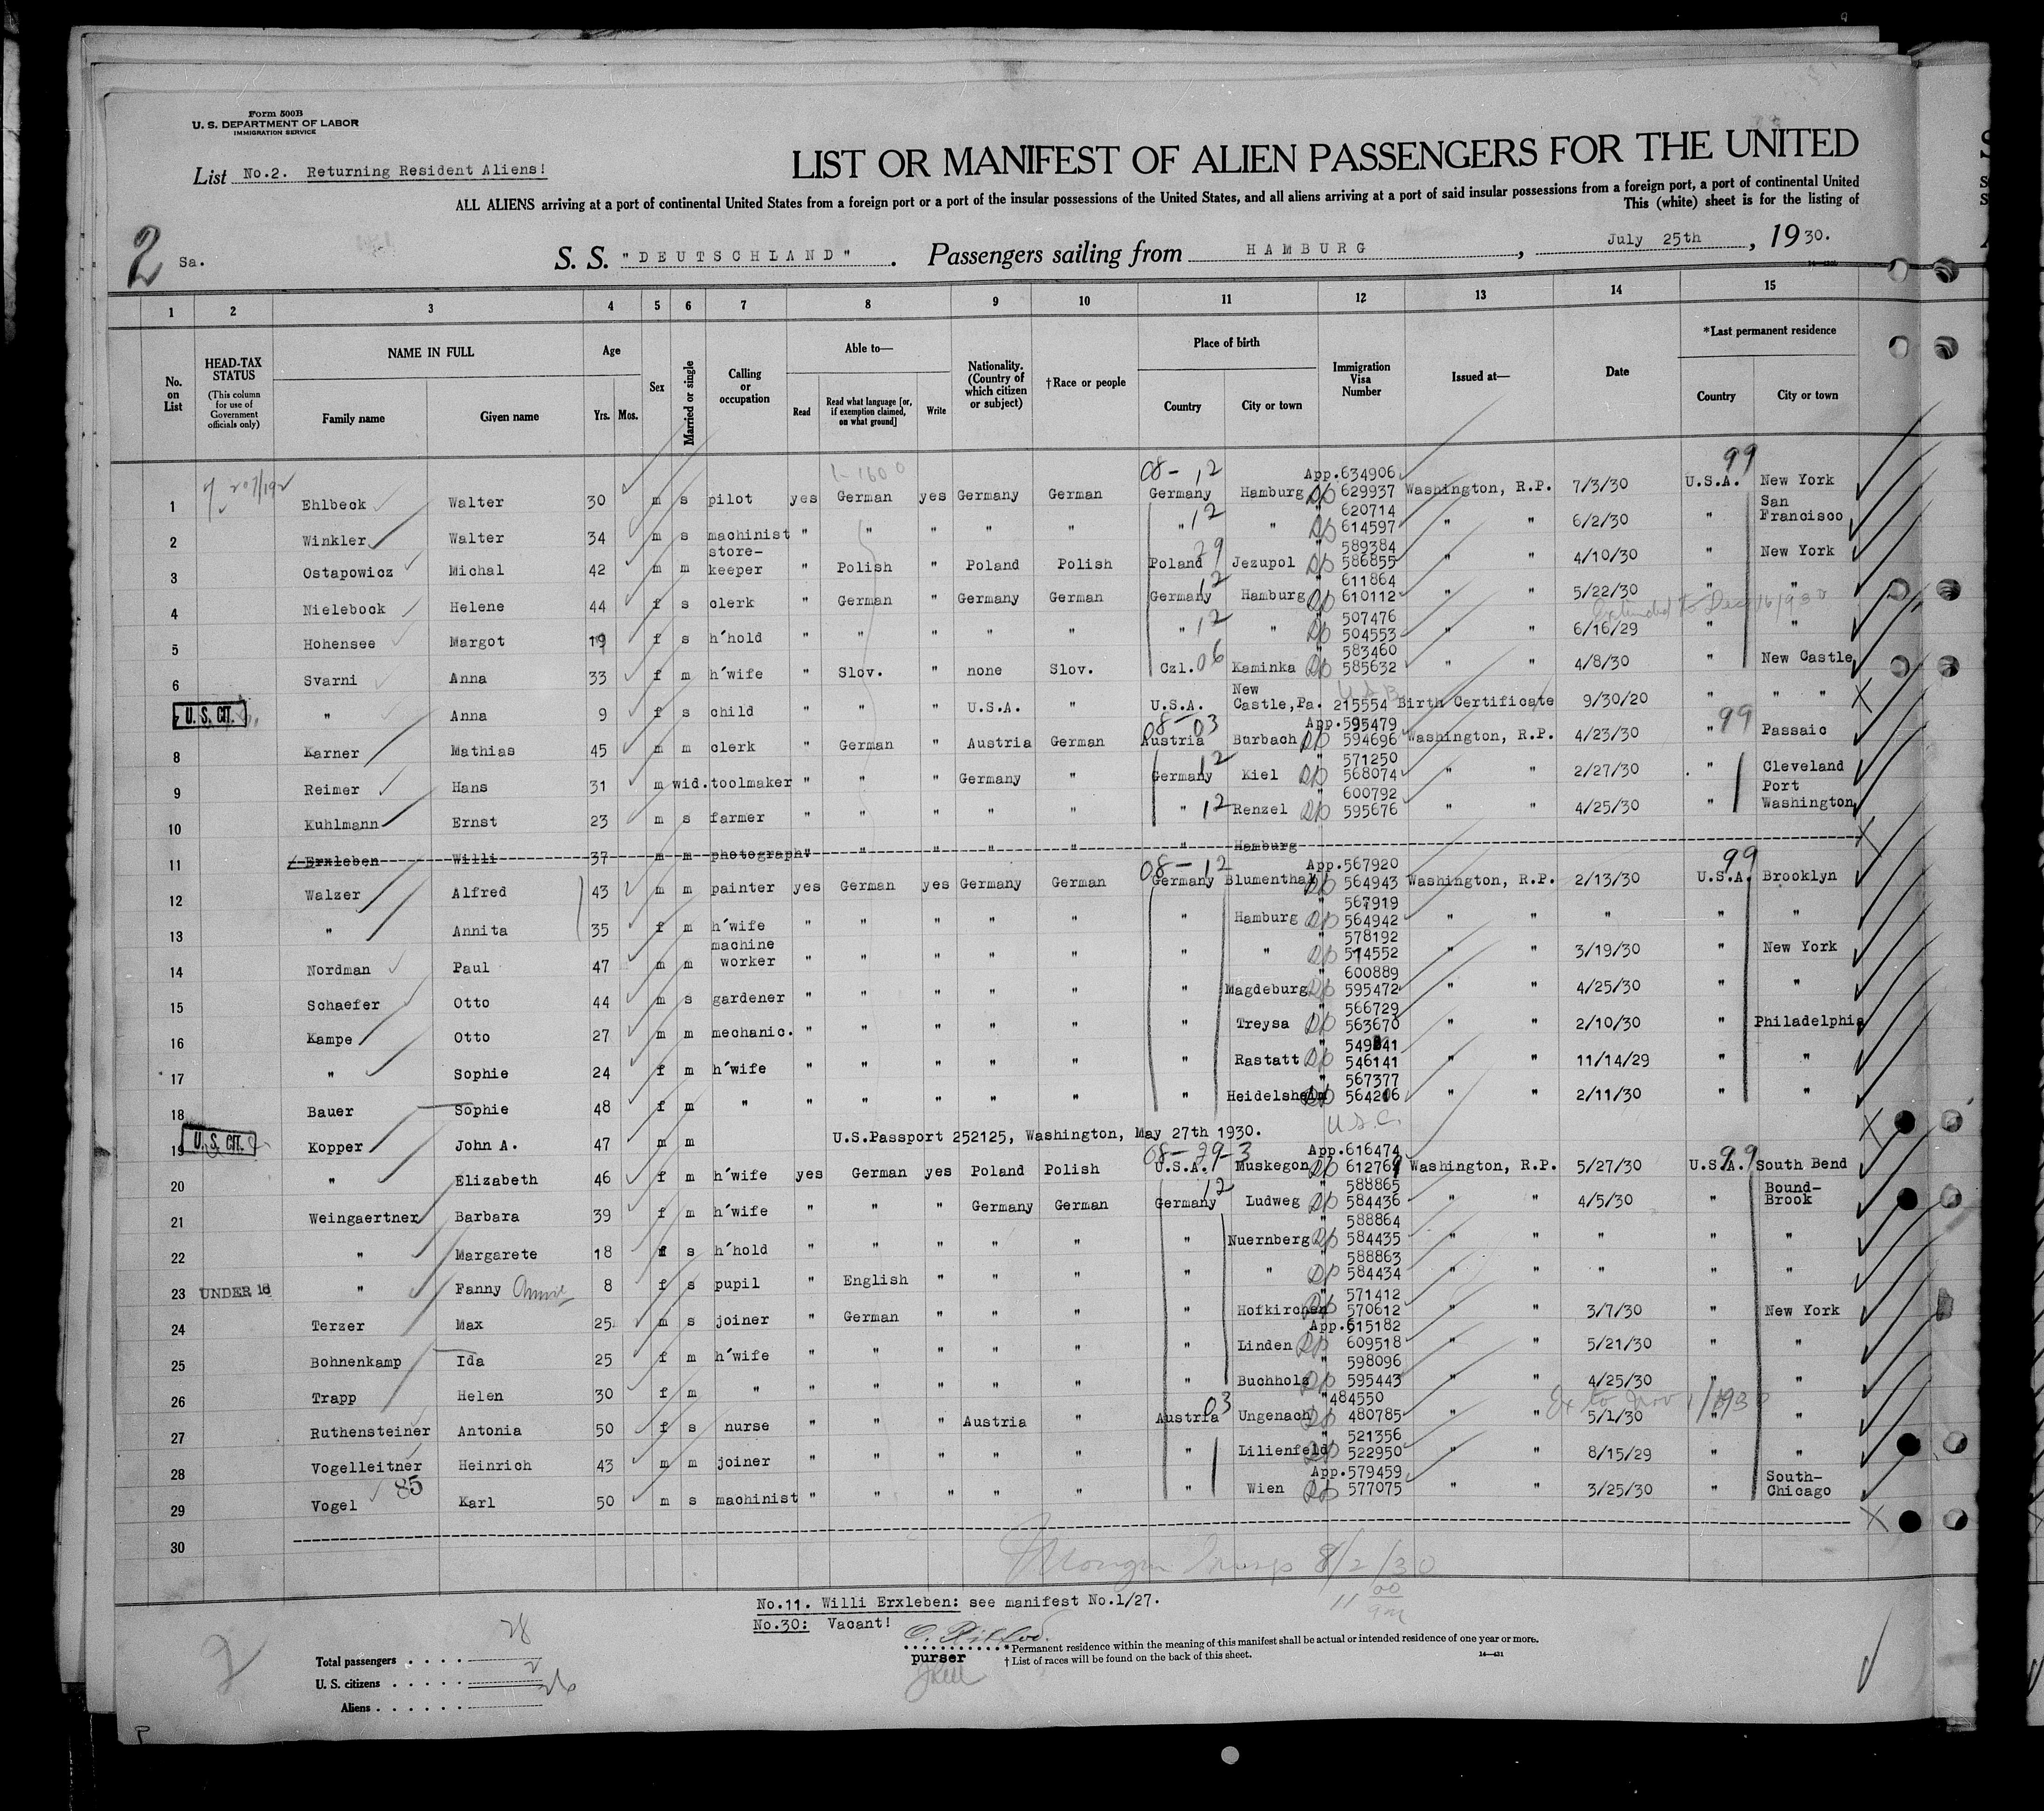 Form 500B
U. S. DEPARTMENT OF LABOR
IMMIGRATION SERVICE
List No.2. Returning Resident Aliens!
LIST OR MANIFEST OF ALIEN PASSENGERS FOR THE UNITED
ALL ALIENS arriving at a port of continental United States from a foreign port or a port of the insular possessions of the United States, and all aliens arriving at a port of said insular possessions from a foreign port, a port of continental United
This (white) sheet is for the listing of
2 Sa.
S. S. "DEUTSCHLAND". Passengers sailing from HAMBURG, July 25th, 1930.
1 2 3 4 5 6 7 8 9 10 11 12 13 14 15
No. on List
HEAD-TAX STATUS (This column for use of Government officials only)
NAME IN FULL Family name Given name
Age Yrs. Mos.
Sex
Married or single
Calling or occupation
Able to— Read Read what language [or, if exemption claimed, on what ground] Write
Nationality. (Country of which citizen or subject)
†Race or people
Place of birth Country City or town
Immigration Visa Number
Issued at—
Date
*Last permanent residence Country City or town
1 Ehlbeck Walter 30 m s pilot yes German yes Germany German 08-12 Germany Hamburg App.634906 629937 Washington, R.P. 7/3/30 99 U.S.A. New York
2 Winkler Walter 34 m s machinist " " " " " " 12 " " 620714 614597 " " 6/2/30 " San Francisco
3 Ostapowicz Michal 42 m m store-keeper " Polish " Poland Polish Poland 29 Jezupol " 589384 586855 " " 4/10/30 " New York
4 Nielebock Helene 44 f s clerk " German " Germany German Germany 12 Hamburg " 611864 610112 " " 5/22/30 " "
Extended to Dec 16/930
5 Hohensee Margot 19 f s h'hold " " " " " " 12 " " 507476 504553 " " 6/16/29 " "
6 Svarni Anna 33 f m h'wife " Slov. " none Slov. Czl. 06 Kaminka " 583460 585632 " " 4/8/30 " New Castle
7 U. S. CIT. " Anna 9 f s child " " " U.S.A. " U.S.A. New Castle, Pa. 215554 Birth Certificate 9/30/20 " " "
8 Karner Mathias 45 m m clerk " German " Austria German 08-03 Austria Burbach App.595479 594696 Washington, R.P. 4/23/30 99 " Passaic
9 Reimer Hans 31 m wid. toolmaker " " " Germany " 12 Germany Kiel " 571250 568074 " " 2/27/30 " Cleveland
10 Kuhlmann Ernst 23 m s farmer " " " " " " 12 Renzel " 600792 595676 " " 4/25/30 " Port Washington
11 Erxleben Willi 37 m m photograph. " " " " " " Hamburg
12 Walzer Alfred 43 m m painter yes German yes Germany German 08-12 Germany Blumenthal App.567920 564943 Washington, R.P. 2/13/30 99 U.S.A. Brooklyn
13 " Annita 35 f m h'wife " " " " " " Hamburg " 567919 564942 " " " " "
14 Nordman Paul 47 m m machine worker " " " " " " " " 578192 574552 " " 3/19/30 " New York
15 Schaefer Otto 44 m s gardener " " " " " " Magdeburg " 600889 595472 " " 4/25/30 " "
16 Kampe Otto 27 m m mechanic. " " " " " " Treysa " 566729 563670 " " 2/10/30 " Philadelphia
17 " Sophie 24 f m h'wife " " " " " " Rastatt " 546141 " " 11/14/29 " "
18 Bauer Sophie 48 f m " " " " " " " Heidelsheim " 567377 564206 " " 2/11/30 " "
19 U. S. CIT. Kopper John A. 47 m m U.S.Passport 252125, Washington, May 27th 1930. U.S.C.
20 " Elizabeth 46 f m h'wife yes German yes Poland Polish 08-29-3 U.S.A. Muskegon App.616474 612769 Washington, R.P. 5/27/30 99 U.S.A. South Bend
21 Weingaertner Barbara 39 f m h'wife " " " Germany German 12 Germany Ludweg " 588865 584436 " " 4/5/30 " Bound-Brook
22 " Margarete 18 f s h'hold " " " " " " Nuernberg " 588864 584435 " " " " "
23 UNDER 16 " Fanny 8 f s pupil " English " " " " " " 588863 584434 " " " " "
24 Terzer Max 25 m s joiner " German " " " " Hofkirchen " 571412 570612 " " 3/7/30 " New York
25 Bohnenkamp Ida 25 f m h'wife " " " " " " Linden App.615182 609518 " " 5/21/30 " "
26 Trapp Helen 30 f m " " " " " " " Buchholz " 598096 595443 " " 4/25/30 " "
Ex to Nov 1/1930
27 Ruthensteiner Antonia 50 f s nurse " " " Austria " 03 Austria Ungenach " 484550 480785 " " 5/1/30 " "
28 Vogelleitner Heinrich 43 m m joiner " " " " " " Lilienfeld " 521356 522950 " " 8/15/29 " "
29 Vogel 85 Karl 50 m s machinist " " " " " " Wien App.579459 577075 " " 3/25/30 " South-Chicago
30
8/2/30
11 00
No.11. Willi Erxleben: see manifest No.1/27.
No.30: Vacant!
purser
*Permanent residence within the meaning of this manifest shall be actual or intended residence of one year or more.
† List of races will be found on the back of this sheet.
14—431
2
Total passengers . . . . . 28
U. S. citizens . . . . . . 2
Aliens . . . . . . . 26